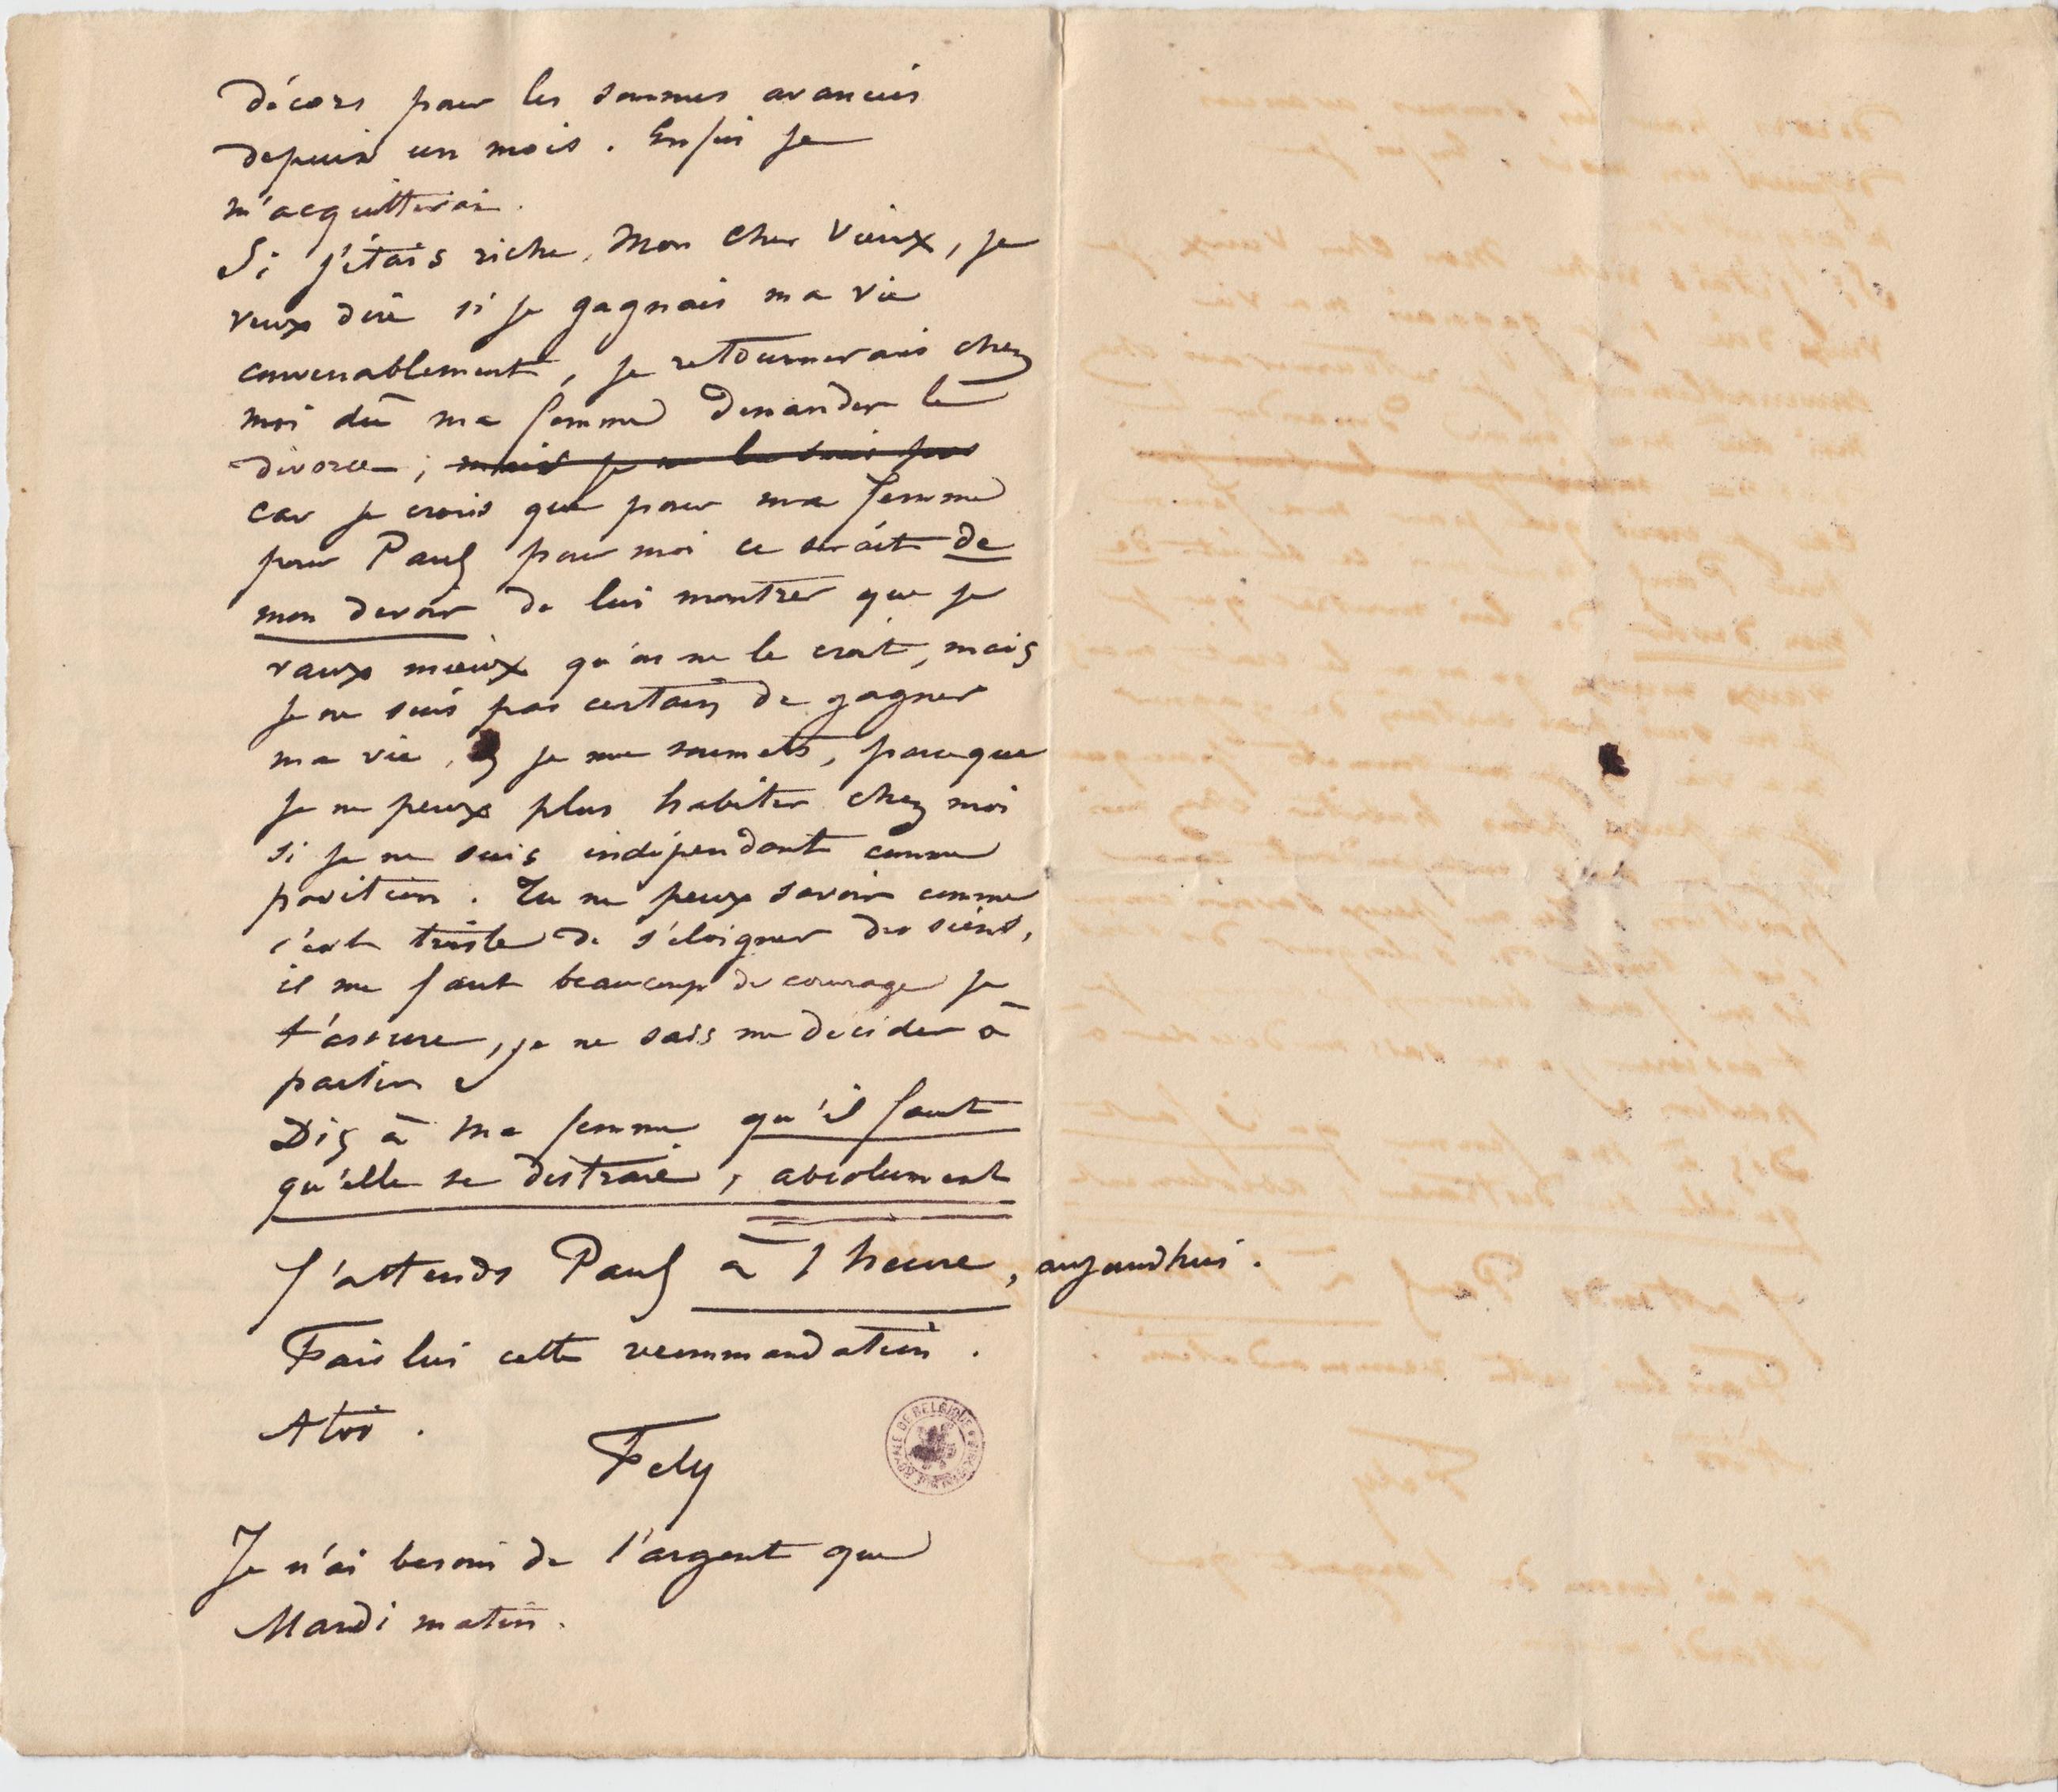 décors pour les sommes avancées
depuis un mois. Enfin je
m'acquitterai.
Si j'étais riche, Mon cher Vieux, je
veux dire si je gagnais ma vie
convenablement, je retournerais chez
moi dût ma femme demander le
divorce; mais je ne le suis pas
car je crois que pour ma femme
pour Paul pour moi ce serait de
mon devoir de lui montrer que je
vaux mieux qu'on ne le croit, mais
je ne suis pas certain de gagner
ma vie, je me soumets, parceque
je ne peux plus habiter chez moi
si je ne suis indépendant comme
position. Tu ne peux savoir comme
c'est triste de s'éloigner des siens,
il me faut beaucoup de courage je
t'assure, je ne sais me décider à
partir
Dis à ma femme qu'il faut
qu'elle se distraie, absolument
J'attends Paul à 1 heure, aujourdhui.
Fais lui cette recommandation.
A toi.
Fély
BIBLIOTHÈQUE ROYALE DE BELGIQUE
Je n'ai besoin de l'argent que
Mardi matin.